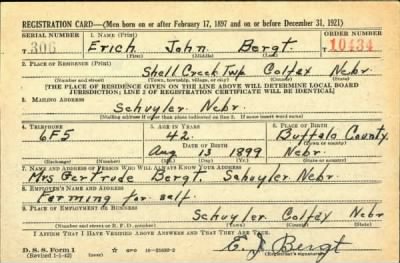 REGISTRATION CARD—(Men born on or after February 17, 1897 and on or before December 31, 1921)
SERIAL NUMBER 1. NAME (Print) ORDER NUMBER
T 306 Erich John Bergt T 10434
(First) (Middle) (Last)
2. PLACE OF RESIDENCE (Print)
Shell Creek Twp Colfax Nebr.
(Number and street) (Town, township, village, or city) (County) (State)
[THE PLACE OF RESIDENCE GIVEN ON THE LINE ABOVE WILL DETERMINE LOCAL BOARD
JURISDICTION; LINE 2 OF REGISTRATION CERTIFICATE WILL BE IDENTICAL]
3. MAILING ADDRESS
Schuyler Nebr.
(Mailing address if other than place indicated on line 2. If same insert word same)
4. TELEPHONE 5. AGE IN YEARS 6. PLACE OF BIRTH
6F5 42. Buffalo County
DATE OF BIRTH (Town or county)
Aug 13 1899 Nebr.
(Exchange) (Number) (Mo.) (Day) (Yr.) (State or country)
7. NAME AND ADDRESS OF PERSON WHO WILL ALWAYS KNOW YOUR ADDRESS
Mrs Gertrude Bergt. Schuyler Nebr.
8. EMPLOYER'S NAME AND ADDRESS
Farming for self.
9. PLACE OF EMPLOYMENT OR BUSINESS
Schuyler Colfax Nebr
(Number and street or R. F. D. number) (Town) (County) (State)
I AFFIRM THAT I HAVE VERIFIED ABOVE ANSWERS AND THAT THEY ARE TRUE.
D. S. S. Form 1
(Revised 1-1-42) GPO E. J Bergt
(Registrant's signature)